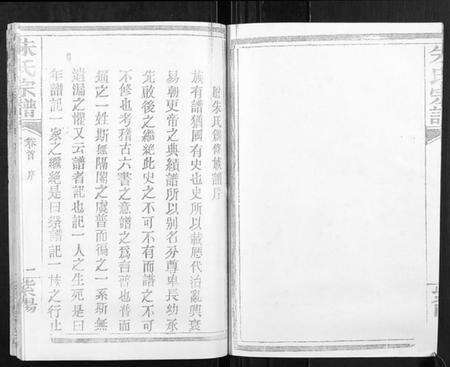 朱氏宗譜
卷首 序
一
紫陽
附朱氏創修族譜序
族有譜猶國有史也史所以載歷代治亂興衰
易朝更帝之典績譜所以別名分尊卑長幼承
先啟後之繼絕此史之不可不有而譜之不可
不修也考稽古六書之意譜之為言普也普而
徧之一姓斯無隔閡之虞普而徧之一系斯無
遺漏之懼又云譜者記也記一人之生死是曰
年譜記一家之繼絕是曰宗譜記一族之行止
朱氏宗譜